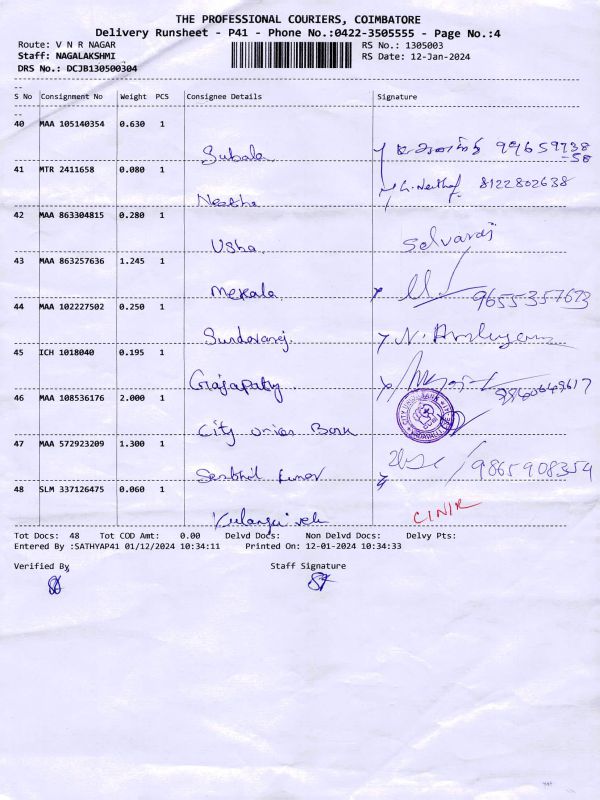 THE PROFESSIONAL COURIERS, COIMBATORE
Delivery Runsheet - P41 - Phone No.:0422-3505555 - Page No.:4
Route: V N R NAGAR
RS No.: 1305003
Staff: NAGALAKSHMI
RS Date: 12-Jan-2024
DRS No.: DCJB130500304
S No Consignment No Weight PCS Consignee Details Signature
40 MAA 105140354 0.630 1
Subala
41 MTR 2411658 0.080 1
8122802638
42 MAA 863304815 0.280 1
Usha.
Selvaraj
43 MAA 863257636 1.245 1
Mekala.
9655357673
44 MAA 102227502 0.250 1
45 ICH 1018040 0.195 1
46 MAA 108536176 2.000 1
City Union Bank
47 MAA 572923209 1.300 1
9865908354
48 SLM 337126475 0.060 1
Tot Docs: 48 Tot COD Amt: 0.00 Delvd Docs: Non Delvd Docs: Delvy Pts:
Entered By :SATHYAP41 01/12/2024 10:34:11 Printed On: 12-01-2024 10:34:33
Verified By Staff Signature